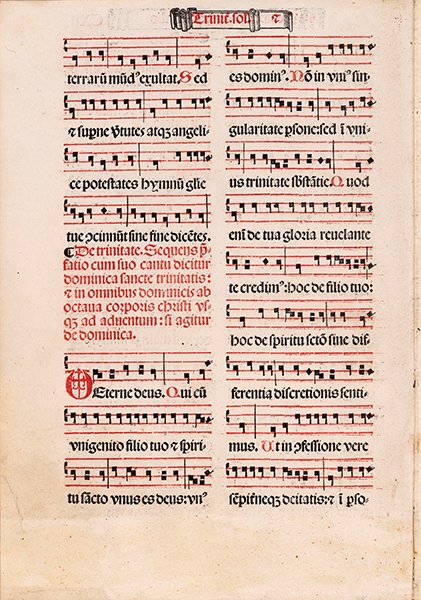 Trinit. sol. ⁊
terrarū mūd⁹ exultat. Sed
⁊ supne ꝟtutes atqꝫ angeli
ce potestates hymnū glīe
tue ꝯcinnūt sine fine dicētes.
¶ De trinitate. Sequens p̄
fatio cum suo cantu dicitur
dominica sancte trinitatis:
⁊ in omnibus dominicis ab
octava corporis christi vs
qꝫ ad aduentum: si agitur
de dominica.
Eterne deus. Qui cū
vnigenito filio tuo ⁊ spiri⸗
tu sācto vnus es deus: vn⁹
es domin⁹. Nō in vni⁹ sin⸗
gularitate ꝑsone: sed ī vni⸗
us trinitate sb̄stātie. Quod
enī de tua gloria reuelante
te credim⁹: hoc de filio tuo:
hoc de spiritu sctō sine dif⸗
ferentia discretionis senti⸗
mus. Ut in ꝯfessione vere
sēpitneqꝫ deitatis: ⁊ ī ꝑso⸗